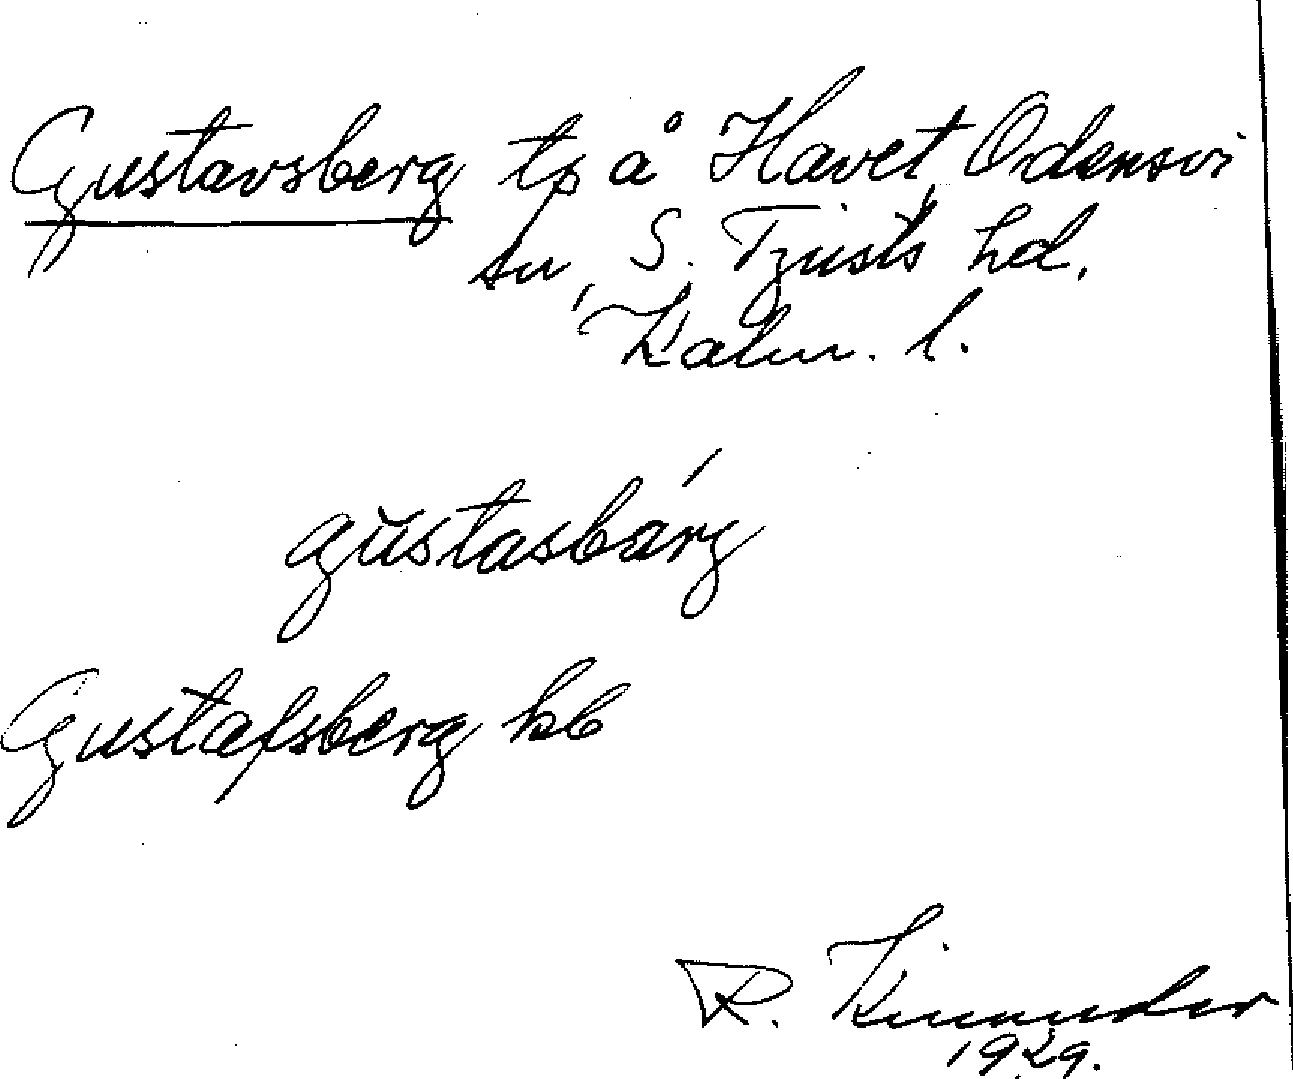 Gustavsberg tp å Havet, Odensvi
sn, S. Tjusts hd.
Kalm. l.
gŭstasbárg
Gustafsberg kb
R. Kinander
1929.